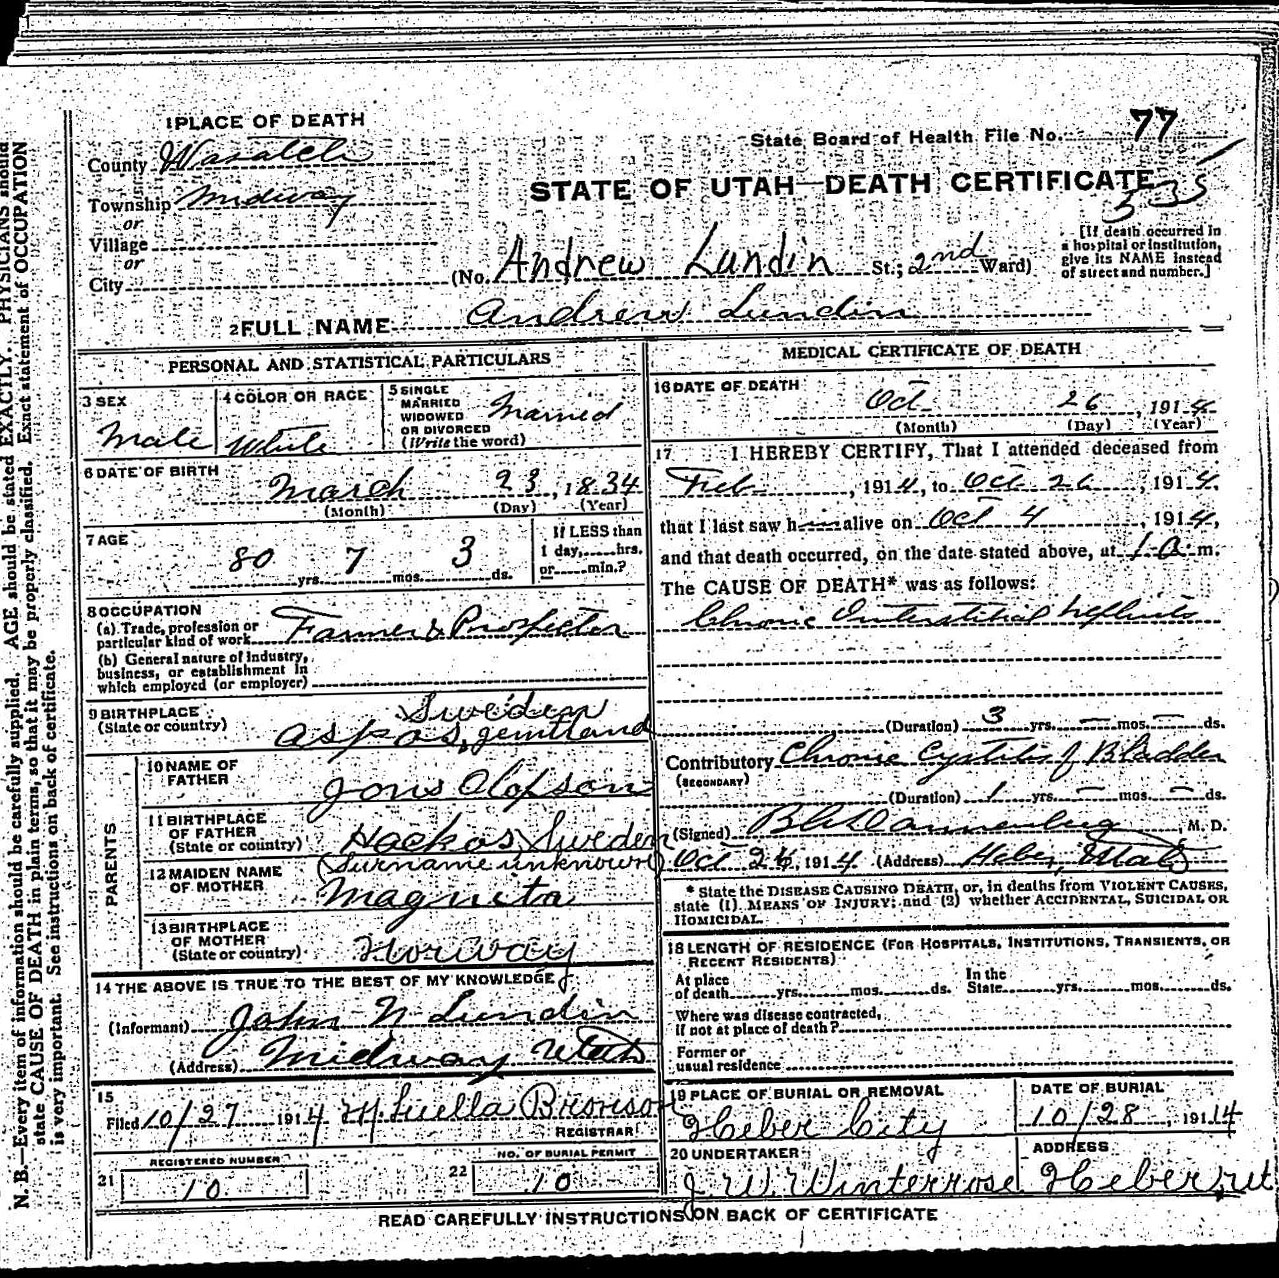 1 PLACE OF DEATH
County Wasatch
Township Midway
or
Village
or
City
State Board of Health File No. 77
STATE OF UTAH—DEATH CERTIFICATE
535
(No. Andrew Lundin St.; 2nd Ward)
[If death occurred in
a hospital or institution,
give its NAME instead
of street and number.]
2 FULL NAME Andrew Lundin
PERSONAL AND STATISTICAL PARTICULARS
3 SEX
Male
4 COLOR OR RACE
White
5 SINGLE
MARRIED
WIDOWED
OR DIVORCED
(Write the word)
Married
6 DATE OF BIRTH
March 23, 1834
(Month) (Day) (Year)
7 AGE
80 yrs. 7 mos. 3 ds.
If LESS than
1 day,.....hrs.
or.....min.?
8 OCCUPATION
(a) Trade, profession or
particular kind of work Farmer & Prospector
(b) General nature of industry,
business, or establishment in
which employed (or employer)
9 BIRTHPLACE
(State or country)
Sweden
Aspas, gemtland
PARENTS
10 NAME OF
FATHER
Jons Olofson
11 BIRTHPLACE
OF FATHER
(State or country) Hackas Sweden
12 MAIDEN NAME
OF MOTHER
(Surname unknown)
Magnita
13 BIRTHPLACE
OF MOTHER
(State or country) Norway
14 THE ABOVE IS TRUE TO THE BEST OF MY KNOWLEDGE
(Informant) John N Lundin
(Address) Midway Utah
15
Filed 10/27 1914 M. Luella Bronson
REGISTRAR
REGISTERED NUMBER
21 10
NO. OF BURIAL PERMIT
22 10
MEDICAL CERTIFICATE OF DEATH
16 DATE OF DEATH
Oct 26, 1914
(Month) (Day) (Year)
17 I HEREBY CERTIFY, That I attended deceased from
Feb, 1914, to Oct 26, 1914,
that I last saw h alive on Oct 4, 1914,
and that death occurred, on the date stated above, at 1 a m.
The CAUSE OF DEATH* was as follows:
Chronic Interstitial Nephritis
(Duration) 3 yrs. — mos. — ds.
Contributory Chronic Cystitis of Bladder
(SECONDARY)
(Duration) 1 yrs. — mos. — ds.
(Signed) Dannenberg, M. D.
Oct 26, 1914 (Address) Heber, Utah
* State the DISEASE CAUSING DEATH, or, in deaths from VIOLENT CAUSES,
state (1) MEANS OF INJURY; and (2) whether ACCIDENTAL, SUICIDAL OR
HOMICIDAL.
18 LENGTH OF RESIDENCE (FOR HOSPITALS, INSTITUTIONS, TRANSIENTS, OR
RECENT RESIDENTS)
At place
of death yrs. mos. ds.
In the
State yrs. mos. ds.
Where was disease contracted,
if not at place of death?
Former or
usual residence
19 PLACE OF BURIAL OR REMOVAL
Heber City
DATE OF BURIAL
10/28, 1914
20 UNDERTAKER
J W. Winterrose
ADDRESS
Heber, ut
READ CAREFULLY INSTRUCTIONS ON BACK OF CERTIFICATE
N. B.—Every item of information should be carefully supplied. AGE should be stated EXACTLY. PHYSICIANS should
state CAUSE OF DEATH in plain terms, so that it may be properly classified. Exact statement of OCCUPATION
is very important. See instructions on back of certificate.